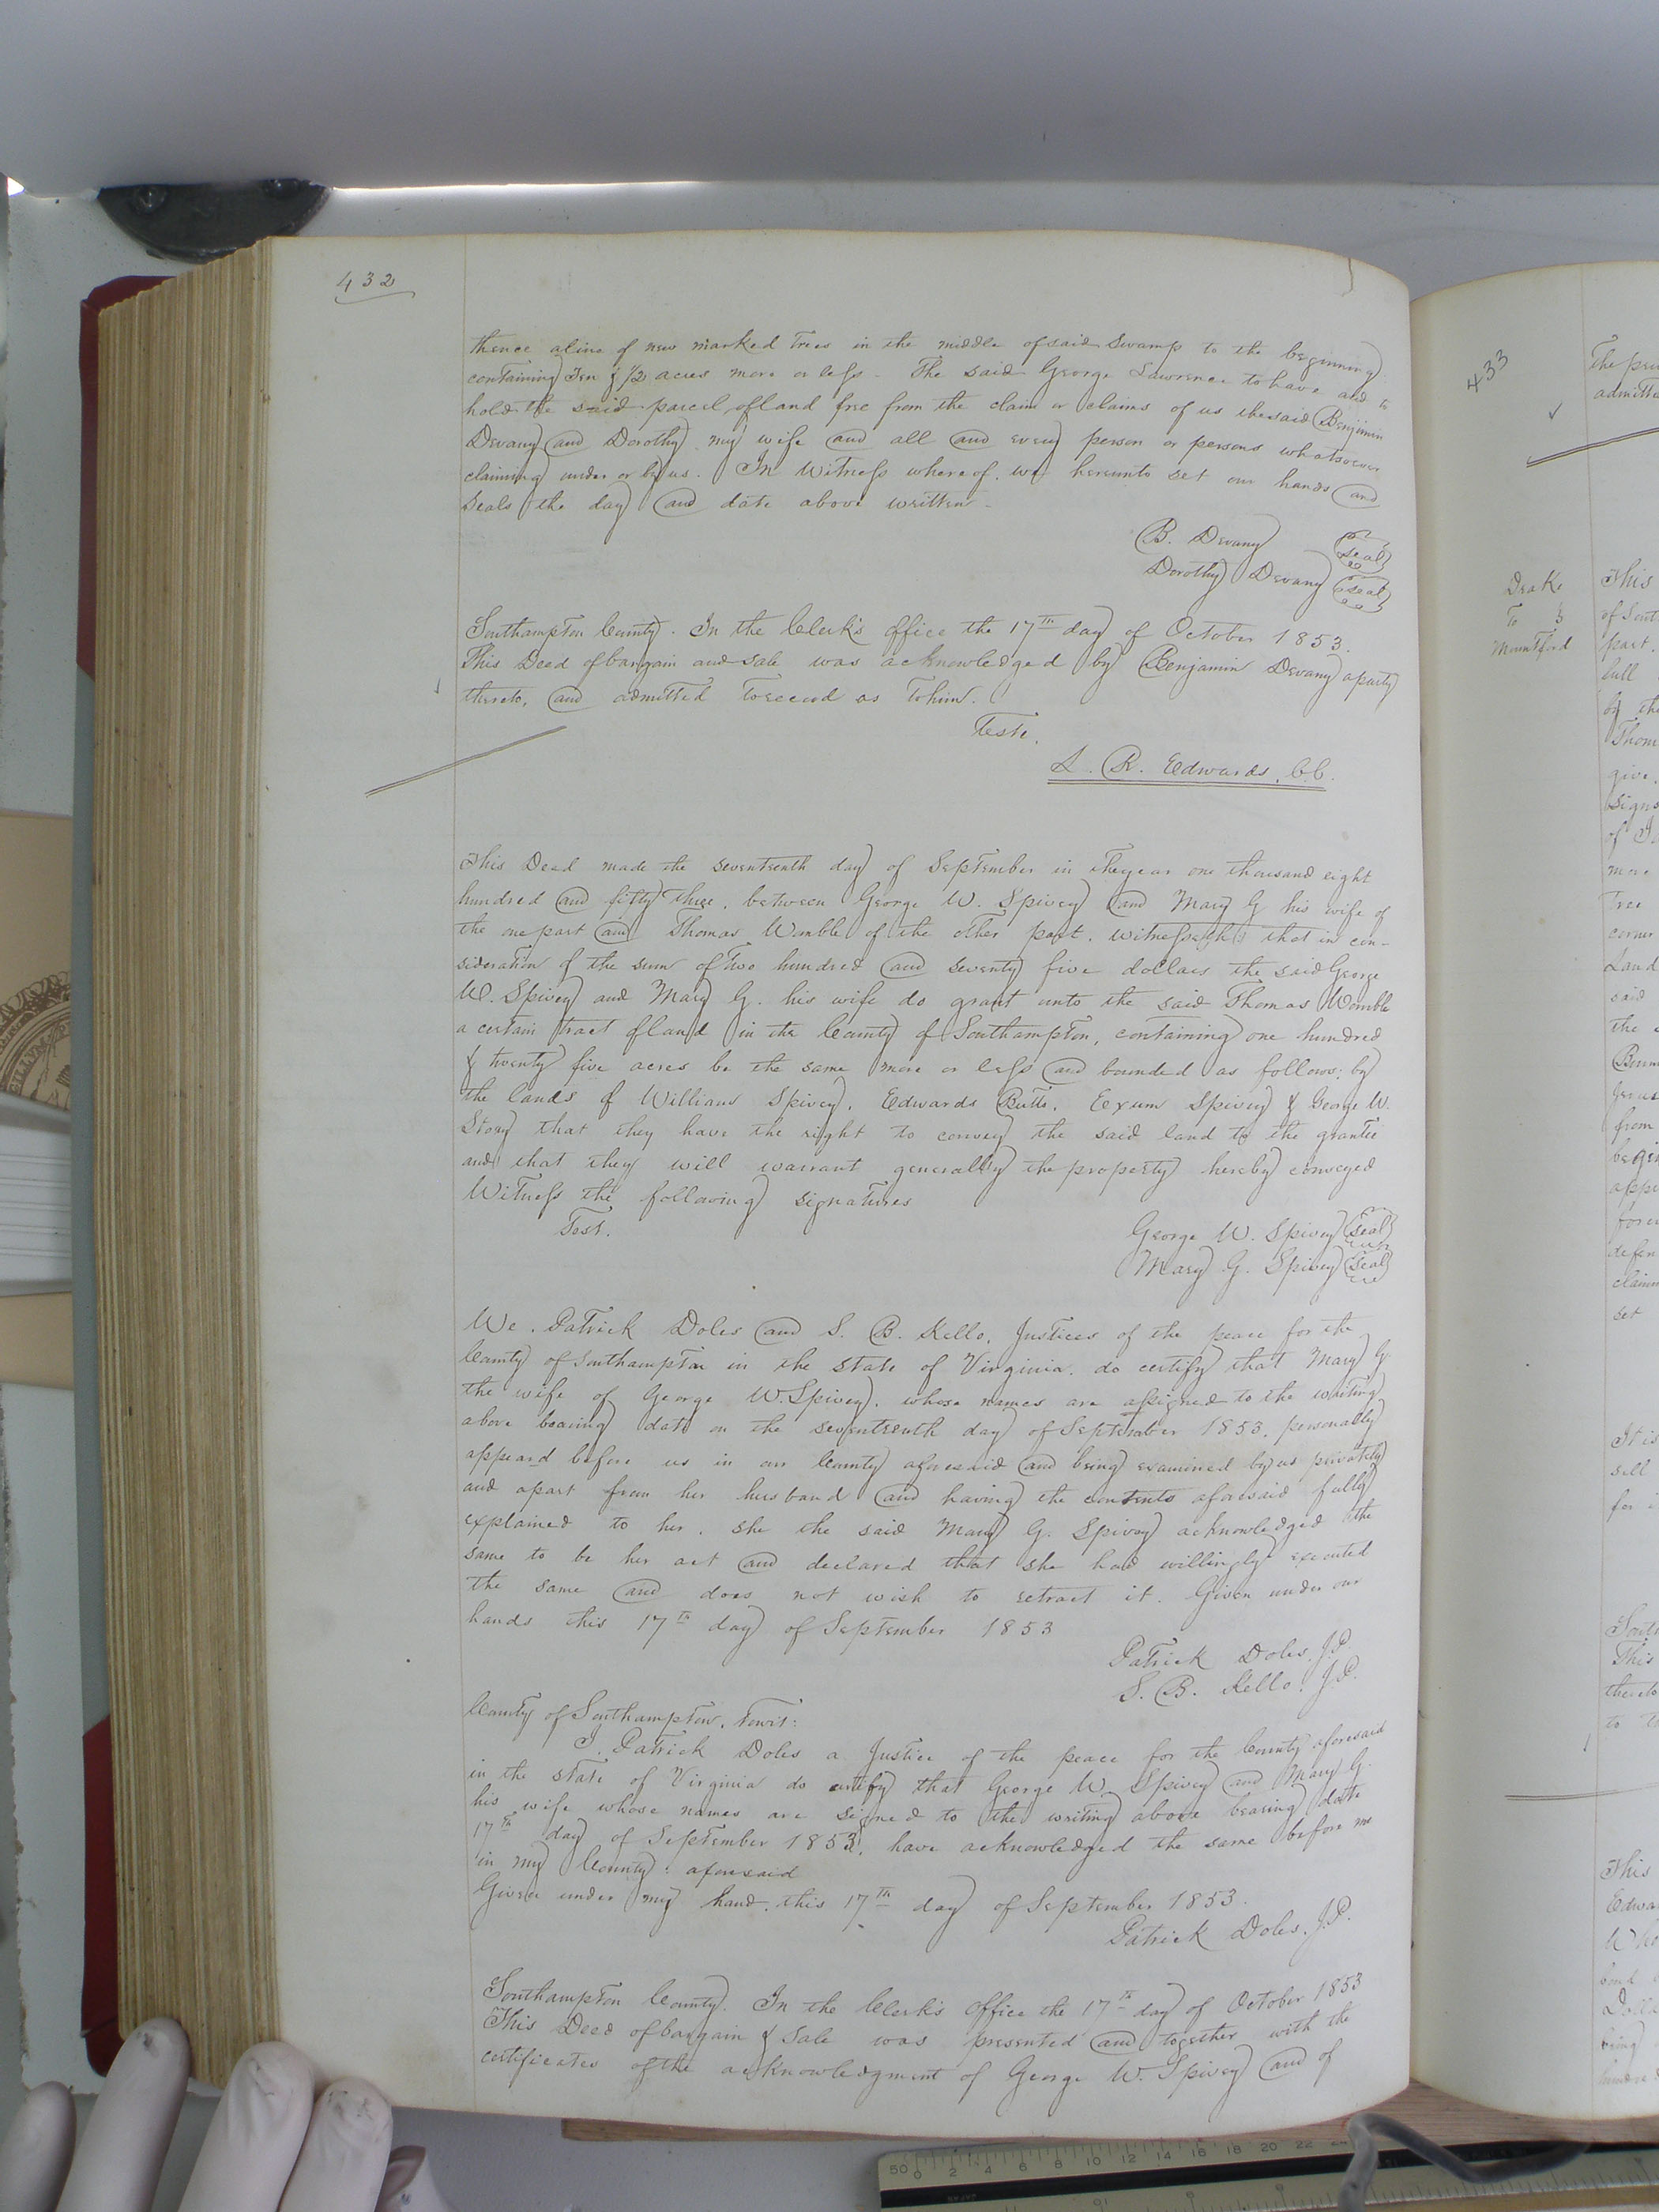 432
thence a line of new marked Trees in the middle of said Swamp to the beginning
containing Ten & 1/2 acres more or less - The said George Lawrence to have and to
hold the said parcel of land free from the claim or claims of us the said Benjimin
Devany and Dorothy my wife and all and every person or persons whatsoever
claiming under or by us. In Witness whereof, we hereunto set our hands and
Seals the day and date above written -
B. Devany Seal
Dorothy Devany Seal
Southampton County. In the Clerk's office the 17th day of October 1853.
This Deed of bargain and sale was acknowledged by Benjamin Devany a party
thereto, and admitted to record as to him.
Teste.
L. R. Edwards. C.C.
This Deed made the seventeenth day of September in the year one thousand eight
hundred and fifty three, between George W. Spivey and Mary G his wife of
the one part and Thomas Womble of the other part, witnesseth that in con-
sideration of the sum of Two hundred and seventy five dollars the said George
W. Spivey and Mary G. his wife do grant unto the said Thomas Womble
a certain tract of land in the County of Southampton, containing one hundred
& twenty five acres be the same more or less and bounded as follows; by
the lands of William Spivey, Edwards Butts, Exum Spivey & George W.
Story that they have the right to convey the said land to the grantee
and that they will warrant generally the property hereby conveyed
Witness the following signatures
Test. George W. Spivey Seal
Mary G. Spivey Seal
We, Patrick Doles and S. B. Kello, Justices of the peace for the
County of Southampton in the State of Virginia, do certify that Mary G.
the wife of George W. Spivey, whose names are assigned to the writing
above bearing date on the seventeenth day of September 1853, personally
appeard before us in our County aforesaid and being examined by us privately
and apart from her husband and having the contents aforesaid fully
explained to her, she the said Mary G. Spivey acknowledged the
same to be her act and declared that she had willingly executed
the same and does not wish to retract it. Given under our
hands this 17th day of September 1853
Patrick Doles. J.P.
S. B. Kello. J.P.
County of Southampton, Towit:
I, Patrick Doles a Justice of the peace for the County aforesaid
in the State of Virginia do certify that George W. Spivey and Mary G.
his wife whose names are signed to the writing above bearing date
17th day of September 1853, have acknowledged the same before me
in my County: aforesaid
Given under my hand, this 17th day of September 1853.
Patrick Doles. J.P.
Southampton County. In the Clerk's Office the 17th day of October 1853
This Deed of bargain & Sale was presented and together with the
certificates of the acknowledgment of George W. Spivey and of
433
Drake
To
Mountfod
The
This
of
part.
full
by the
give,
of
Tree
corner
Land
said
the
from
set
It is
sell
for
This
thereto
to
This
50 0 2 4 6 8 10 12 14 16 18 20 22